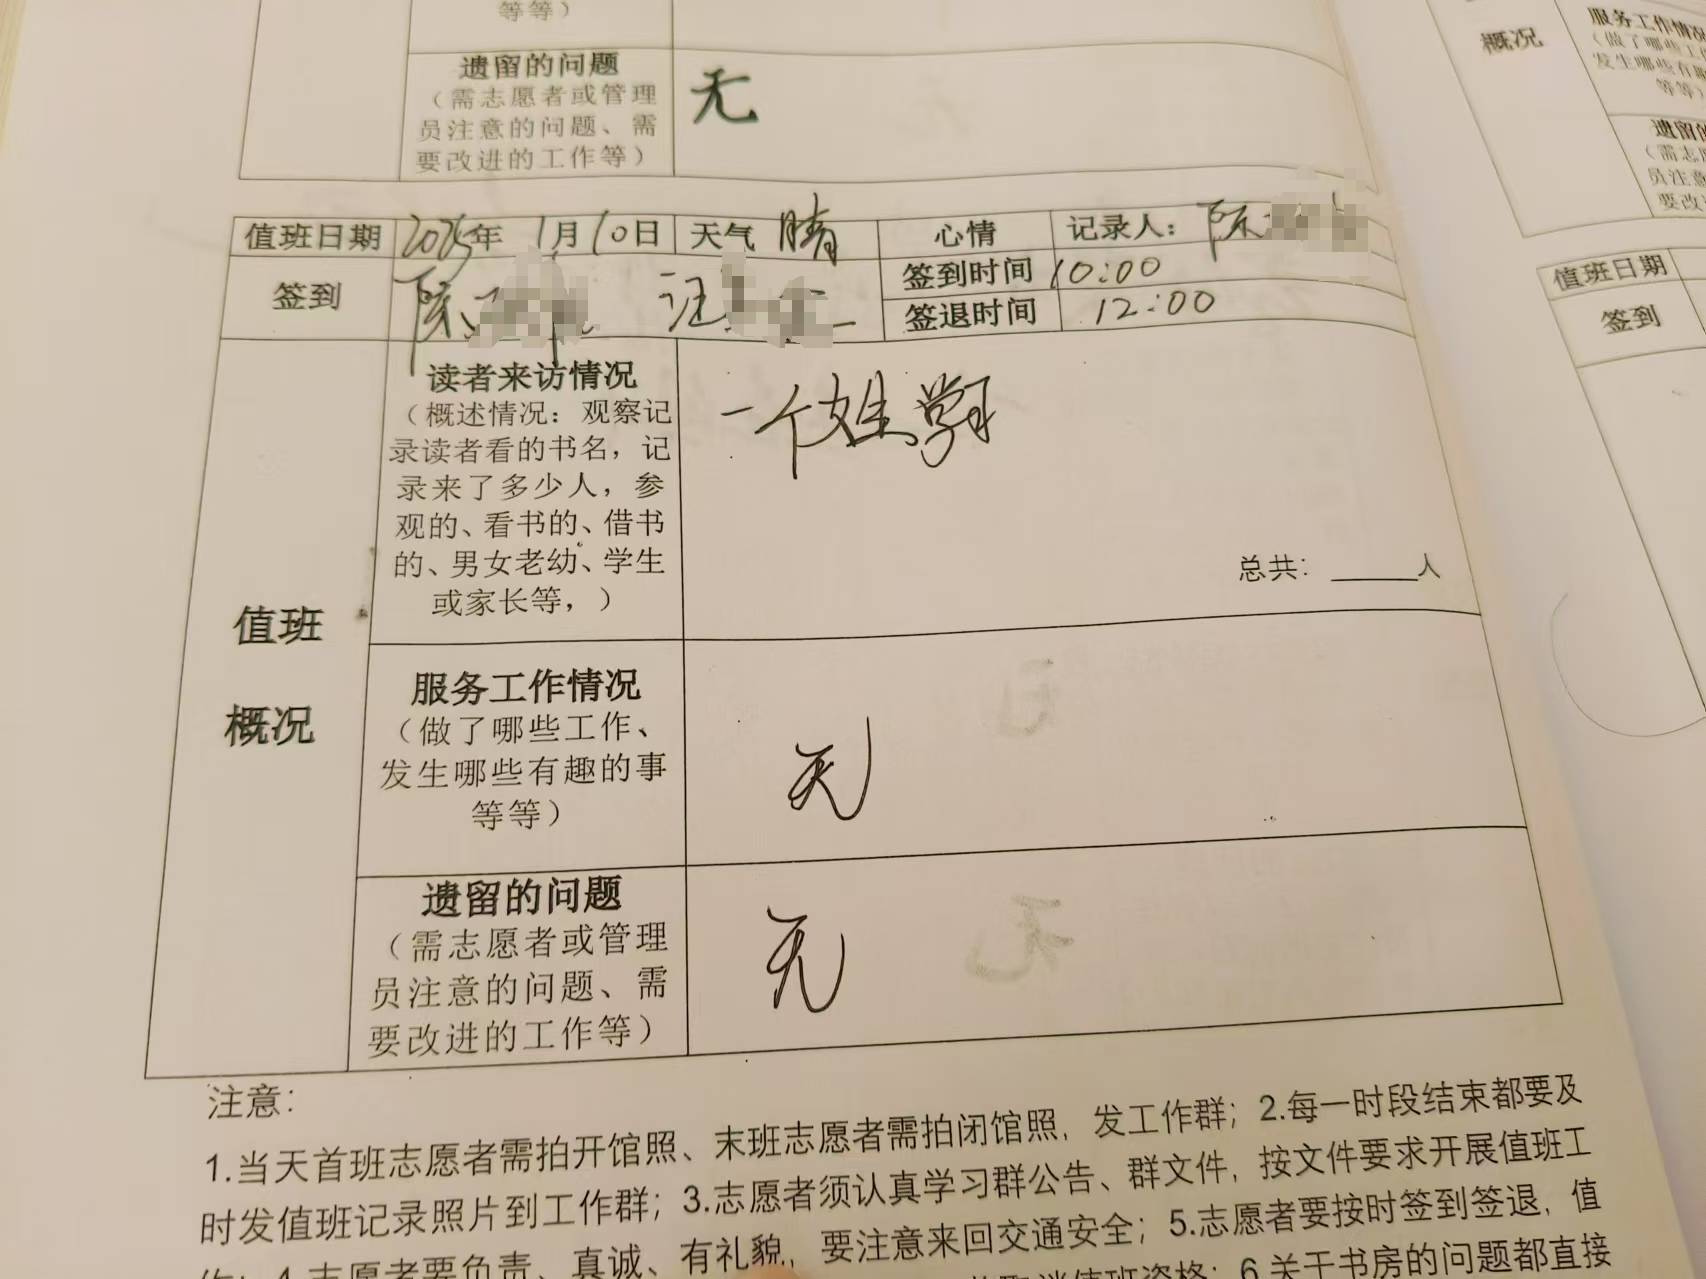 等等）
遗留的问题
（需志愿者或管理
员注意的问题、需
要改进的工作等）
无
值班日期 2025年 1月10日 天气 晴 心情 记录人：陈
签到 陈 汪 签到时间 10:00
签退时间 12:00
值班
概况
读者来访情况
（概述情况：观察记
录读者看的书名，记
录来了多少人，参
观的、看书的、借书
的、男女老幼、学生
或家长等，）
一个
总共：_____人
服务工作情况
（做了哪些工作、
发生哪些有趣的事
等等）
无
遗留的问题
（需志愿者或管理
员注意的问题、需
要改进的工作等）
无
注意：
1.当天首班志愿者需拍开馆照、末班志愿者需拍闭馆照，发工作群；2.每一时段结束都要及
时发值班记录照片到工作群；3.志愿者须认真学习群公告、群文件，按文件要求开展值班工
作；4.志愿者要负责、真诚、有礼貌，要注意来回交通安全；5.志愿者要按时签到签退，值
值班资格；6.关于书房的问题都直接
概况
服务工作情况
（做了哪些工
发生哪些有趣
等等）
遗留的
（需志愿
员注意
要改
值班日期
签到